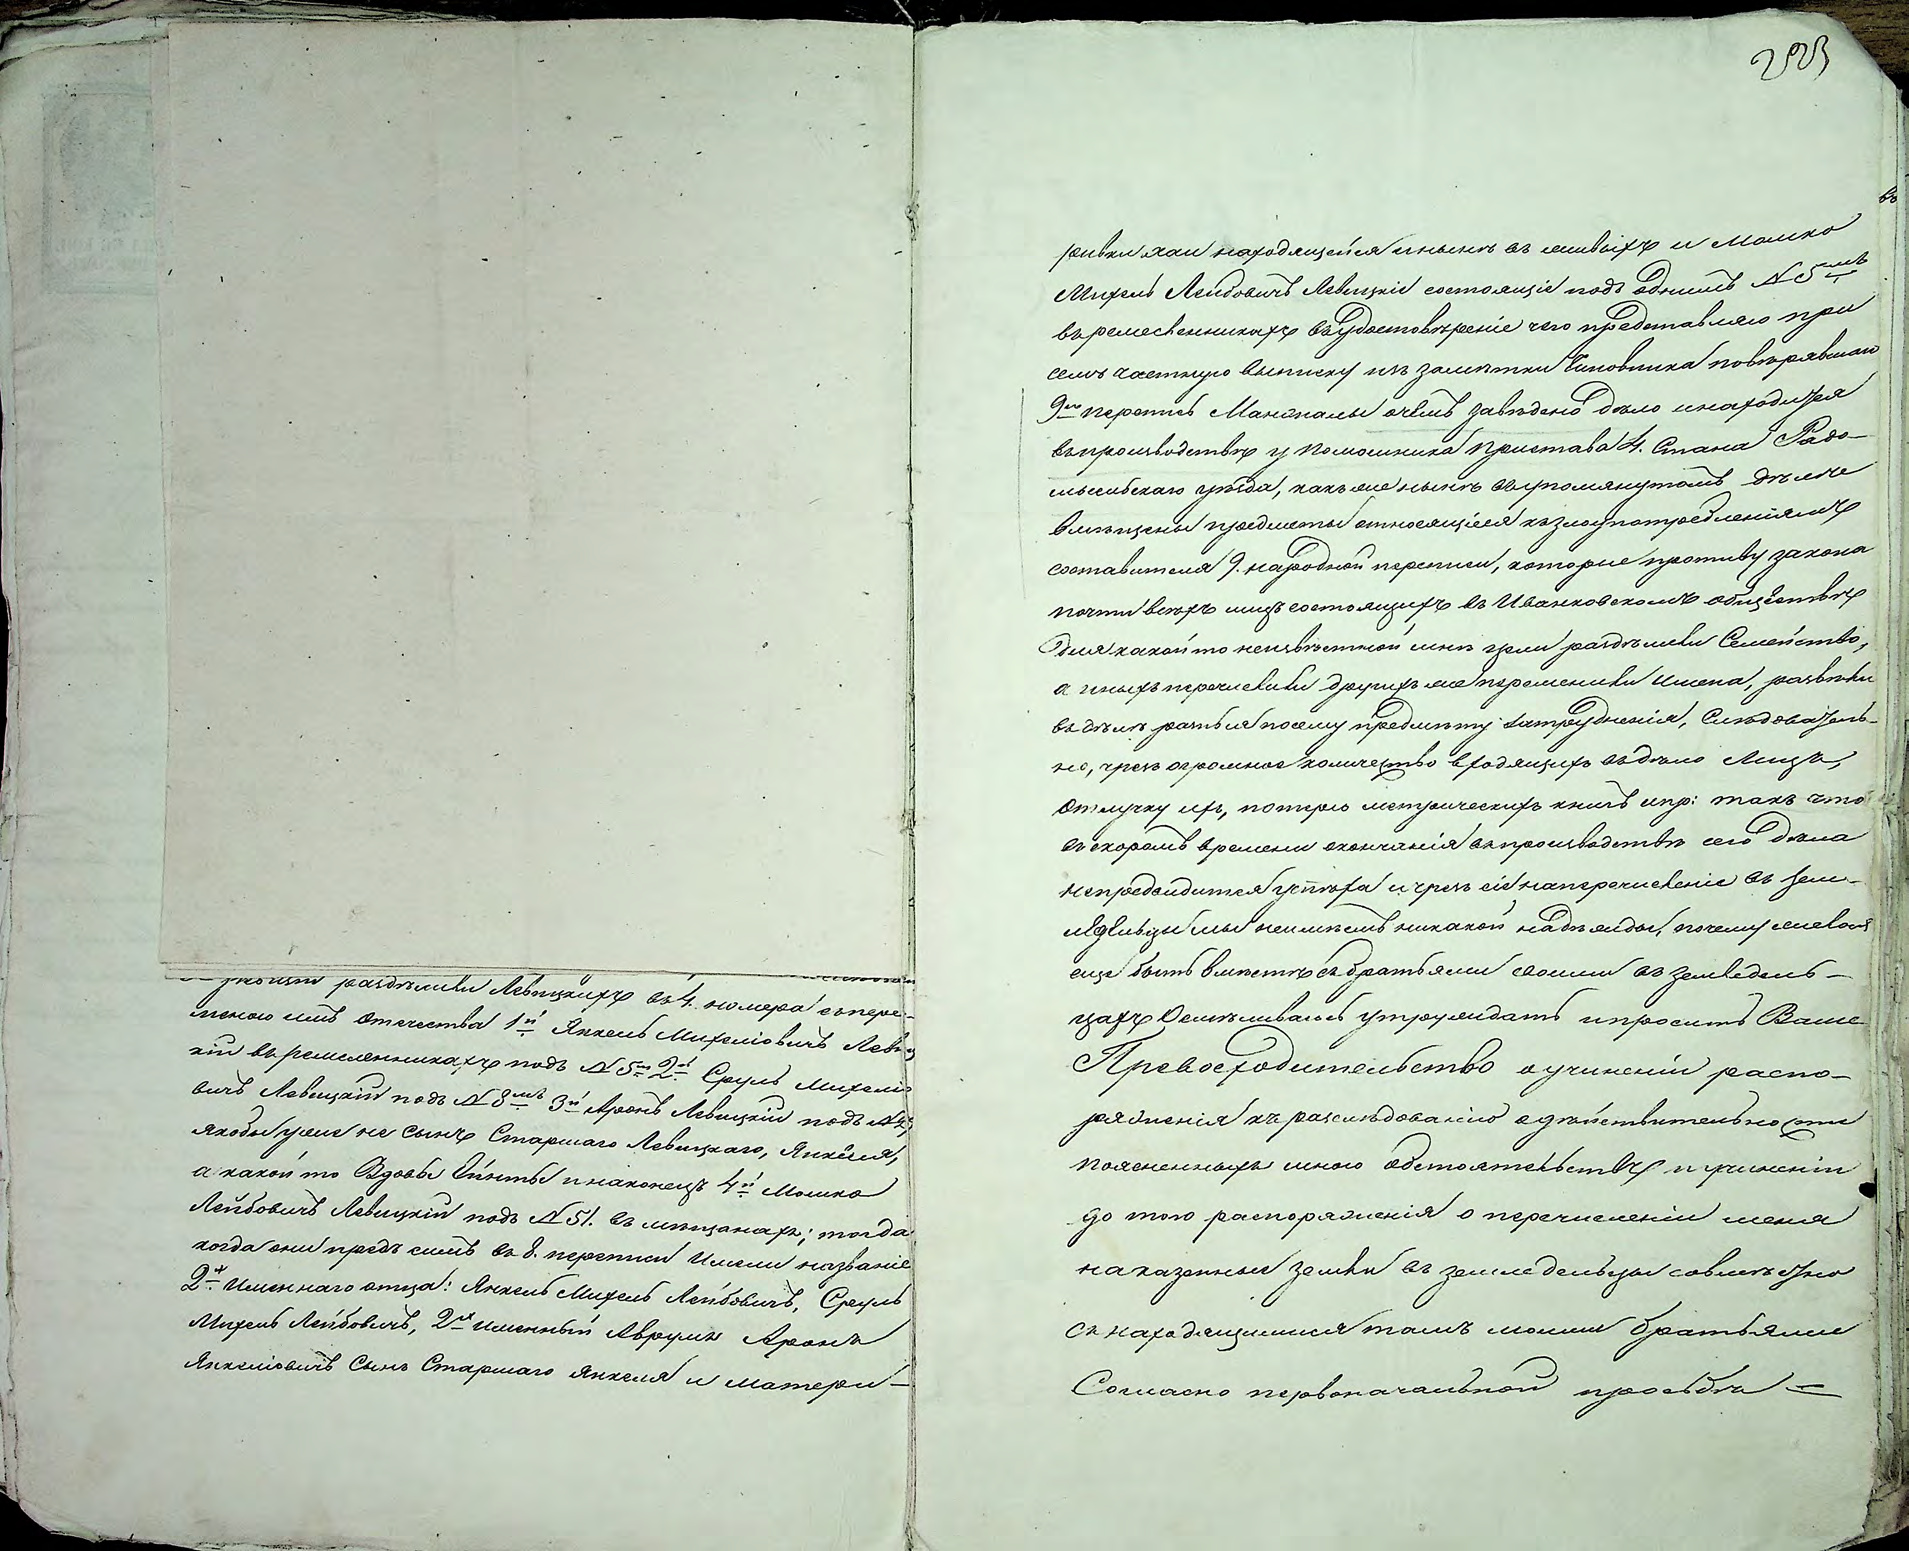 раздѣлили Левицкихъ въ 4. номера съ пере-
меною имъ Отечества 1й Янкель Михеліовичъ Левиц
кій въ ремесленникахъ подъ N 5м 2й Сруль Михеліо
вичъ Левицкій подъ N 8мъ 3й Аронъ Левицкій подъ N
якобы уже не сынъ Старшаго Левицкаго, Янкеля,
а какой то Вдовы и наконецъ 4й Мошко
Лейбовичъ Левицкій подъ N 51. въ мѣщанахъ; тогда
когда они предъ симъ въ 8. переписи Имели названіе
2х Именнаго отца: Янкель Михель Лейбовичъ, Сруль
Михель Лейбовичъ, 2хъ именный Аврумъ Аронъ
Янкеліовичъ Сынъ Старшаго Янкеля и матери-
253
въ
ривки хаи находящейся и нынѣ въ живыхъ и Мошко
Михель Лейбовичъ Левицкіе состоящіе подъ однимъ N 5мъ
въ ремесленникахъ въ удостовѣреніе чего представляю при
семъ частную выписку изъ замѣтки Чиновника повѣрявшаго
9ю перепись о чемъ заведено дѣло и находится
въ производствѣ у помошника Пристава 4. Стана Радо-
мысльскаго уѣзда, какъ же нынѣ въ упомянутомъ дѣлѣ
вмѣщены предметы относящіеся къ злоупотребленіямъ
составителя 9. народной переписи, которые противу закона
почти всѣхъ лицъ состоящихъ въ Иванковскомъ обществѣ
для какой то неизвѣстной мнѣ цели раздѣлили Семейство,
а иныхъ перечислили другихъ же переменили имена,
въ семъ по сему предмѣту затрудненія, Слѣдователь-
но, чрезъ огромное количество входящихъ въ дѣло Лицъ,
Отлучку ихъ, потерю метрическихъ книгъ и пр: такъ что
въ скоромъ времени окончанія въ производствѣ сего дѣла
непредвидится успѣха и чрезъ сіе на перечисленіе въ зем-
ледѣльцы мы неимѣемъ никакой надѣжды, почему желая
еще быть вмѣстѣ съ братьями своими въ земледель-
цахъ Осмѣливаюсь утруждать и просить Ваше
Превосходительство о учиненіи распо-
ряженія къ разслѣдованію о дѣйствительности
поясненныхъ мною обстоятельствъ и учиненіи
до того распоряженія о перечисленіи меня
на казенные земли въ земледельцы совместно
съ находящимися тамъ моими братьями
Согласно первоначальной просьбы —